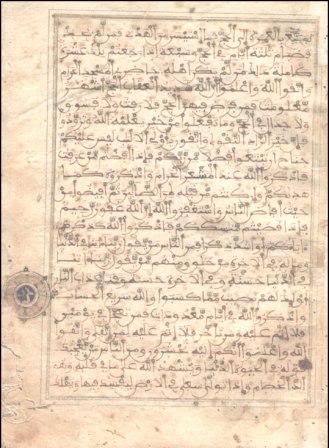 تمتع بالعمرة إلى الحج فما استيسر من الهدى فمن لم يجد
فصيام ثلثة أيام في الحج وسبعة إذا رجعتم تلك عشرة
كاملة ذلك لمن لم يكن أهله حاضرى المسجد الحرام
واتقوا الله واعلموا أن الله شديد العقاب الحج أشهر
معلومت فمن فرض فيهن الحج فلا رفث ولا فسوق
ولا جدال في الحج وما تفعلوا من خير يعلمه الله وتزودوا
فإن خير الزاد التقوى واتقون يأولى الألبب ليس عليكم
جناح أن تبتغوا فضلا من ربكم فإذا أفضتم من عرفت
فاذكروا الله عند المشعر الحرام واذكروه كما
هديكم وإن كنتم من قبله لمن الضالين ثم أفيضوا من
حيث أفاض الناس واستغفروا الله إن الله غفور رحيم
فإذا قضيتم منسككم فاذكروا الله كذكركم
ءاباءكم أو أشد ذكرا فمن الناس من يقول ربنا ءاتنا في الدنيا
وما له في الآخرة من خلق ومنهم من يقول ربنا ءاتنا
في الدنيا حسنة وفي الآخرة حسنة وقنا عذاب النار
أولئك لهم نصيب مما كسبوا والله سريع الحساب
واذكروا الله في أيام معدودت فمن تعجل في يومين
فلا إثم عليه ومن تأخر فلا إثم عليه لمن اتقى واتقوا
الله واعلموا أنكم إليه تحشرون ومن الناس من يعجبك
قوله في الحيوة الدنيا ويشهد الله على ما في قلبه وهو
ألد الخصام وإذا تولى سعى في الأرض ليفسد فيها ويهلك